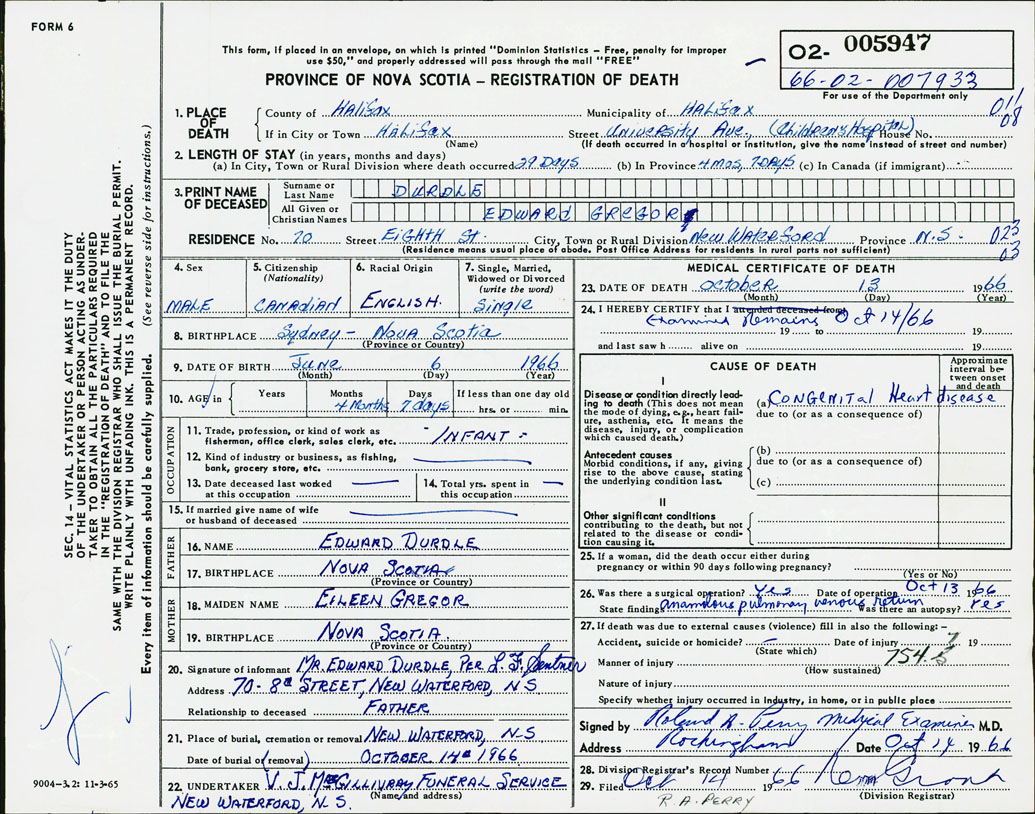 FORM 6
This form, if placed in an envelope, on which is printed "Dominion Statistics – Free, penalty for improper
use $50," and properly addressed will pass through the mail "FREE"
O2- 005947
66-02-007933
For use of the Department only
PROVINCE OF NOVA SCOTIA – REGISTRATION OF DEATH
011
08
1. PLACE OF DEATH
County of Halifax Municipality of Halifax
If in City or Town Halifax Street University Ave., (Children's Hospital) House No.
(Name) (If death occurred in a hospital or institution, give the name instead of street and number)
2. LENGTH OF STAY (in years, months and days)
(a) In City, Town or Rural Division where death occurred 29 Days (b) In Province 4 mos, 7 days (c) In Canada (if immigrant)
3. PRINT NAME OF DECEASED
Surname or Last Name DURDLE
All Given or Christian Names EDWARD GREGOR
RESIDENCE No. 70 Street Eighth St. City, Town or Rural Division New Waterford Province N.S.
(Residence means usual place of abode. Post Office Address for residents in rural parts not sufficient)
023
03
4. Sex MALE
5. Citizenship (Nationality) CANADIAN
6. Racial Origin ENGLISH.
7. Single, Married, Widowed or Divorced (write the word) Single
8. BIRTHPLACE Sydney – Nova Scotia
(Province or Country)
9. DATE OF BIRTH June 6 1966
(Month) (Day) (Year)
10. AGE in Years Months Days If less than one day old
4 Months 7 days hrs. or min.
OCCUPATION
11. Trade, profession, or kind of work as fisherman, office clerk, sales clerk, etc. - INFANT -
12. Kind of industry or business, as fishing, bank, grocery store, etc.
13. Date deceased last worked at this occupation
14. Total yrs. spent in this occupation
15. If married give name of wife or husband of deceased
FATHER
16. NAME EDWARD DURDLE
17. BIRTHPLACE NOVA SCOTIA
(Province or Country)
MOTHER
18. MAIDEN NAME EILEEN GREGOR
19. BIRTHPLACE NOVA SCOTIA.
(Province or Country)
20. Signature of informant MR. EDWARD DURDLE, PER
Address 70-8th STREET, NEW WATERFORD, N S
Relationship to deceased FATHER
21. Place of burial, cremation or removal NEW WATERFORD, N.S
Date of burial (or removal) OCTOBER 14th 1966
22. UNDERTAKER V. J. McGILLIVRAY FUNERAL SERVICE
(Name and address)
NEW WATERFORD, N.S.
MEDICAL CERTIFICATE OF DEATH
23. DATE OF DEATH October 13 1966
(Month) (Day) (Year)
24. I HEREBY CERTIFY that I attended deceased from
Examined Remains Oct 14/66
19 to 19
and last saw h alive on 19
CAUSE OF DEATH
Approximate interval between onset and death
I
Disease or condition directly leading to death (This does not mean the mode of dying, e.g., heart failure, asthenia, etc. It means the disease, injury, or complication which caused death.)
(a) CONGENITAL Heart disease
due to (or as a consequence of)
Antecedent causes
Morbid conditions, if any, giving rise to the above cause, stating the underlying condition last.
(b)
due to (or as a consequence of)
(c)
II
Other significant conditions
contributing to the death, but not related to the disease or condition causing it.
25. If a woman, did the death occur either during pregnancy or within 90 days following pregnancy?
(Yes or No)
26. Was there a surgical operation? Yes Date of operation Oct 13 1966
State findings anamolous pulmonary venous return Was there an autopsy? Yes
27. If death was due to external causes (violence) fill in also the following: –
Accident, suicide or homicide? Date of injury 19
(State which)
754.5
Manner of injury
(How sustained)
Nature of injury
Specify whether injury occurred in industry, in home, or in public place
Signed by Roland A. Perry Medical Examiner M.D.
Address Rockingham Date Oct 14 1966
28. Division Registrar's Record Number
29. Filed Oct 14 1966
(Division Registrar)
R. A. PERRY
SEC. 14 – VITAL STATISTICS ACT MAKES IT THE DUTY
OF THE UNDERTAKER OR PERSON ACTING AS UNDER-
TAKER TO OBTAIN ALL THE PARTICULARS REQUIRED
IN THE "REGISTRATION OF DEATH" AND TO FILE THE
SAME WITH THE DIVISION REGISTRAR WHO SHALL ISSUE THE BURIAL PERMIT.
WRITE PLAINLY WITH UNFADING INK. THIS IS A PERMANENT RECORD.
Every item of information should be carefully supplied. (See reverse side for instructions.)
9004-3.2: 11-3-65